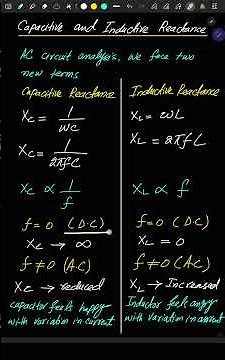 Capacitive and Inductive Reactance
AC circuit analysis, we face two
new terms
Capacitive Reactance
Xc = 1/ωc
Xc = 1/2πfC
Xc ∝ 1/f
f = 0 (D.C)
Xc → ∞
f ≠ 0 (A.C)
Xc → reduced
Capacitor feels happy
with variation in current
Inductive Reactance
XL = ωL
XL = 2πfL
XL ∝ f
f = 0 (D.C)
XL = 0
f ≠ 0 (A.C)
XL → Increased
Inductor feels angry
with variation in current